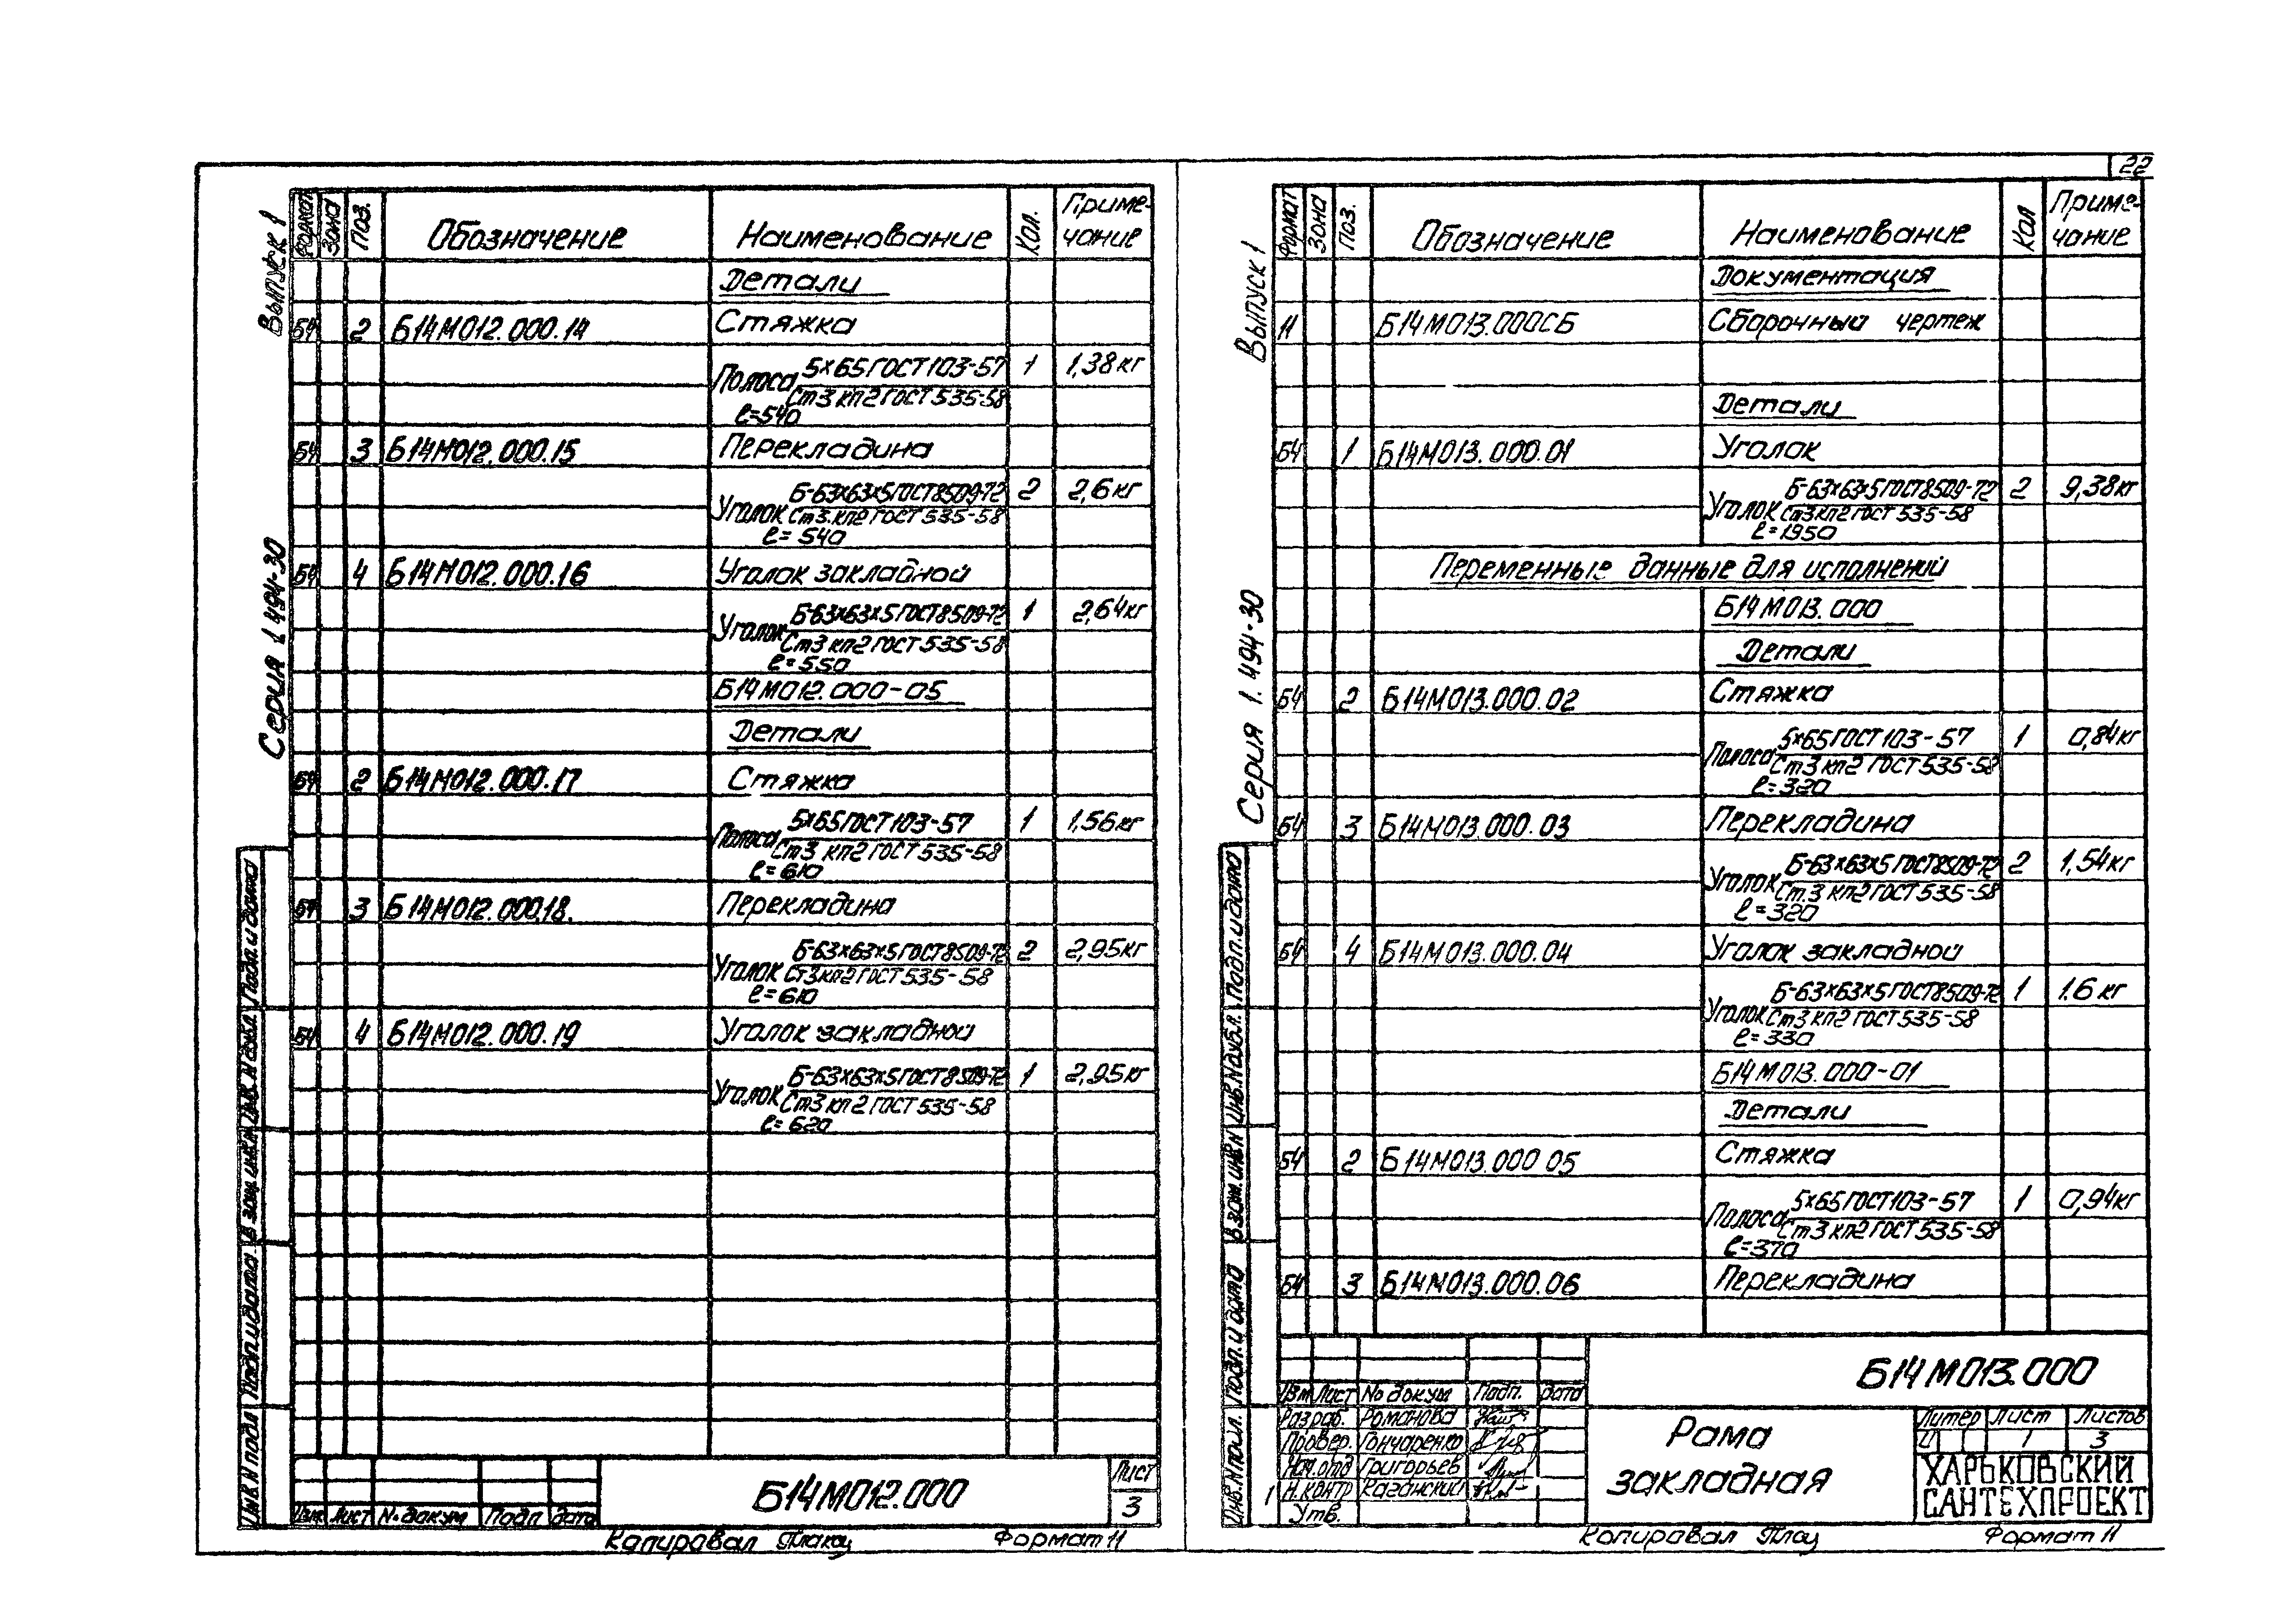 22
Выпуск 1
Серия 1.494-30
Формат Зона Поз. Обозначение Наименование Кол. Примечание
Детали
Б4 2 Б14М012.000.14 Стяжка
Полоса 5×65 ГОСТ 103-57 1 1,38кг
Ст3 кп2 ГОСТ 535-58
ℓ=540
Б4 3 Б14М012.000.15 Перекладина
Уголок Б-63×63×5 ГОСТ 8509-72 2 2,6кг
Ст3.кп2 ГОСТ 535-58
ℓ=540
Б4 4 Б14М012.000.16 Уголок закладной
Уголок Б-63×63×5 ГОСТ 8509-72 1 2,64кг
Ст3 кп2 ГОСТ 535-58
ℓ=550
Б14М012.000-05
Детали
Б4 2 Б14М012.000.17 Стяжка
Полоса 5×65 ГОСТ 103-57 1 1,56кг
Ст3 кп2 ГОСТ 535-58
ℓ=610
Б4 3 Б14М012.000.18. Перекладина
Уголок Б-63×63×5 ГОСТ 8509-72 2 2,95кг
Ст3кп2 ГОСТ 535-58
ℓ=610
Б4 4 Б14М012.000.19 Уголок закладной
Уголок Б-63×63×5 ГОСТ 8509-72 1 2,95кг
Ст3 кп2 ГОСТ 535-58
ℓ=620
Инв.N подл Подп.и дата Взам.инв.N Инв.N дубл. Подп.и дата
Изм Лист № докум Подп дата
Б14М012.000
Лист
3
Копировал
Формат 11
Выпуск 1
Серия 1.494-30
Формат Зона Поз. Обозначение Наименование Кол Примечание
Документация
11 Б14М013.000СБ Сборочный чертеж
Детали
Б4 1 Б14М013.000.01 Уголок
Уголок Б-63×63×5 ГОСТ 8509-72 2 9,38кг
Ст3кп2 ГОСТ 535-58
ℓ=1950
Переменные данные для исполнений
Б14М013.000
Детали
Б4 2 Б14М013.000.02 Стяжка
Полоса 5×65 ГОСТ 103-57 1 0,84кг
Ст3 кп2 ГОСТ 535-58
ℓ=320
Б4 3 Б14М013.000.03 Перекладина
Уголок Б-63×63×5 ГОСТ 8509-72 2 1,54кг
Ст.3 кп2 ГОСТ 535-58
ℓ=320
Б4 4 Б14М013.000.04 Уголок закладной
Уголок Б-63×63×5 ГОСТ 8509-72 1 1.6 кг
Ст3 кп2 ГОСТ 535-58
ℓ=330
Б14М013.000-01
Детали
Б4 2 Б14М013.000 05 Стяжка
Полоса 5×65 ГОСТ 103-57 1 0,94кг
Ст3 кп2 ГОСТ 535-58
ℓ=370
Б4 3 Б14М013.000.06 Перекладина
Инв.N подл. Подп. и дата Взам.инв.N Инв.N дубл. Подп.и дата
Б14М013.000
Изм Лист № докум Подп. дата
Разраб. Романова
Провер. Гончаренко
Нач.отд Григорьев
Н.контр Каганский
Утв.
1
Рама
закладная
Литер Лист Листов
И 1 3
ХАРЬКОВСКИЙ
САНТЕХПРОЕКТ
Копировал
Формат 11